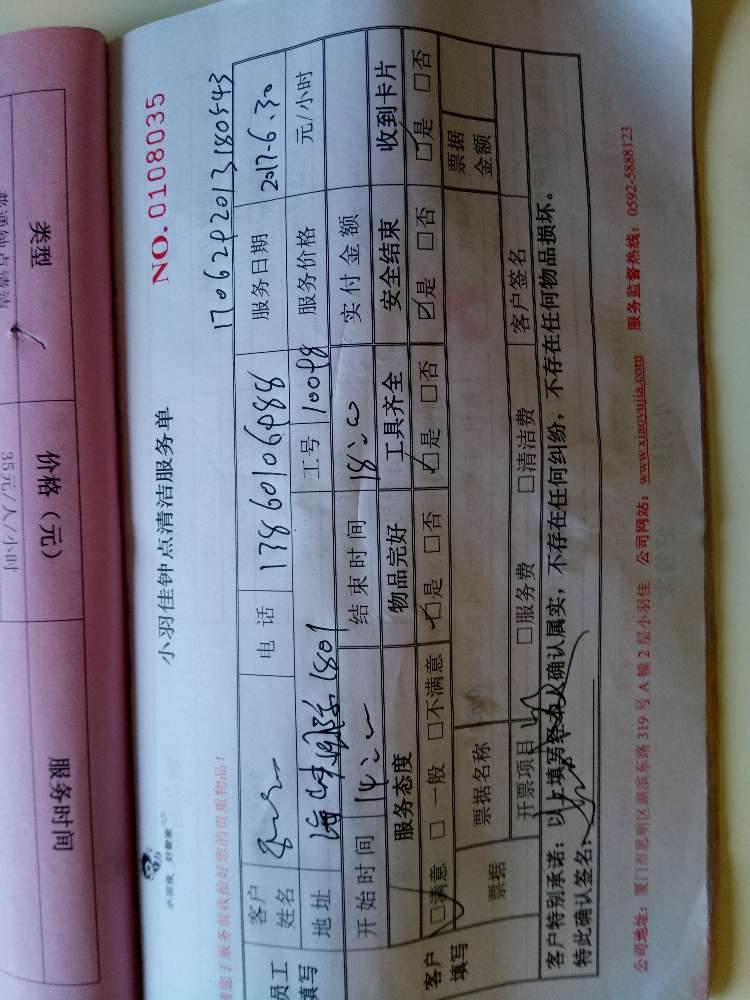 类型 价格（元） 服务时间
35元/人/小时
小羽佳 好管家
小羽佳钟点清洁服务单 NO.0108035
于服务前收拾好您的贵重物品！
客户姓名 电话 服务日期 2017-6.30
地址 1801 工号 服务价格 元/小时
开始时间 结束时间 18:00 实付金额
服务态度 物品完好 工具齐全 安全结束 收到卡片
☑满意 □一般 □不满意 ☑是 □否 ☑是 □否 ☑是 □否 ☑是 □否
客户填写
票据 票据名称 票据金额
开票项目 □服务费 □清洁费 客户签名
客户特别承诺：以上填写经本人确认属实，不存在任何纠纷，不存在任何物品损坏。
特此确认签名：
公司地址：厦门市思明区湖滨东路 319 号 A 幢 2 层小羽佳 公司网站：www.xiaoyujia.com 服务监督热线：0592-5888123